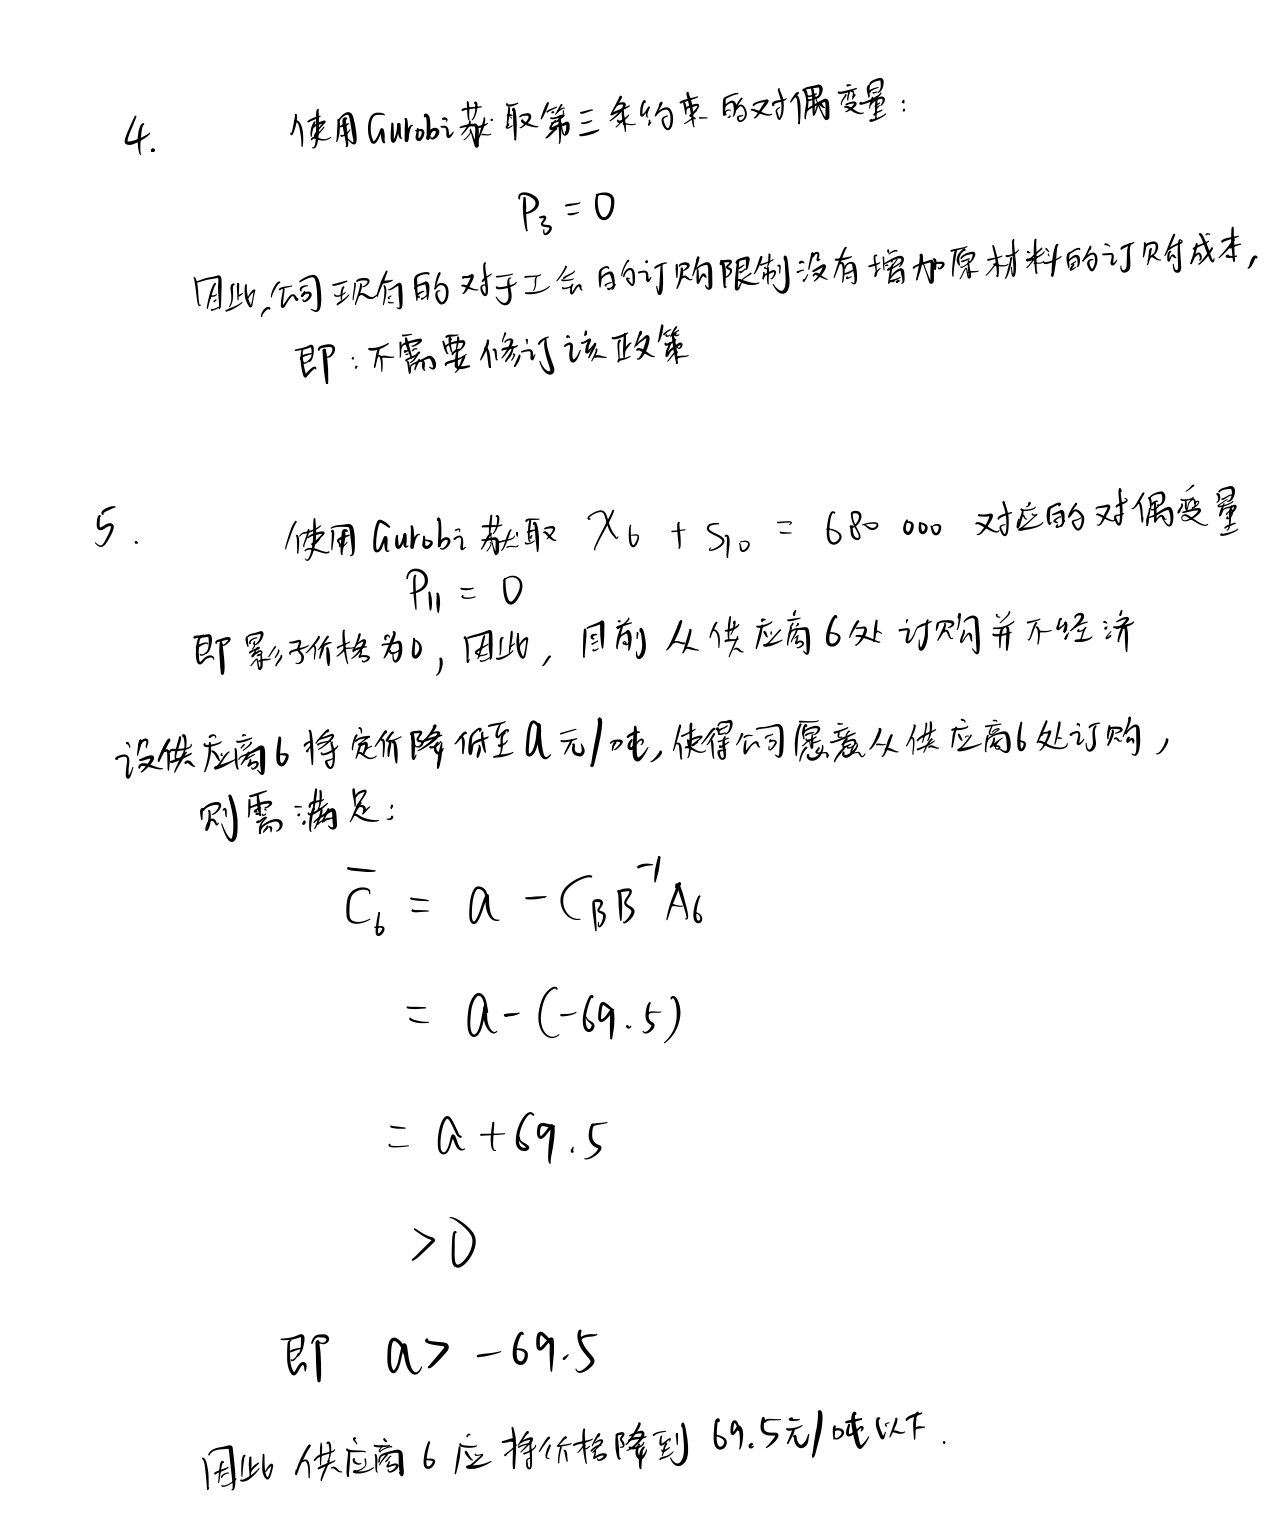 4. 使用Gurobi获取第三条约束的对偶变量：
P₃ = 0
因此，公司现有的对于工会的订购限制没有增加原材料的订购成本，
即：不需要修订该政策
5. 使用Gurobi获取 x₆ + s₁₀ = 680 000 对应的对偶变量
P₁₁ = 0
即影子价格为0，因此，目前从供应商6处订购并不经济
设供应商6将定价降低至a元/吨，使得公司愿意从供应商6处订购，
则需满足：
C̄₆ = a - C_B B⁻¹ A₆
= a - (-69.5)
= a + 69.5
> 0
即 a > -69.5
因此 供应商6应将价格降到69.5元/吨以下.